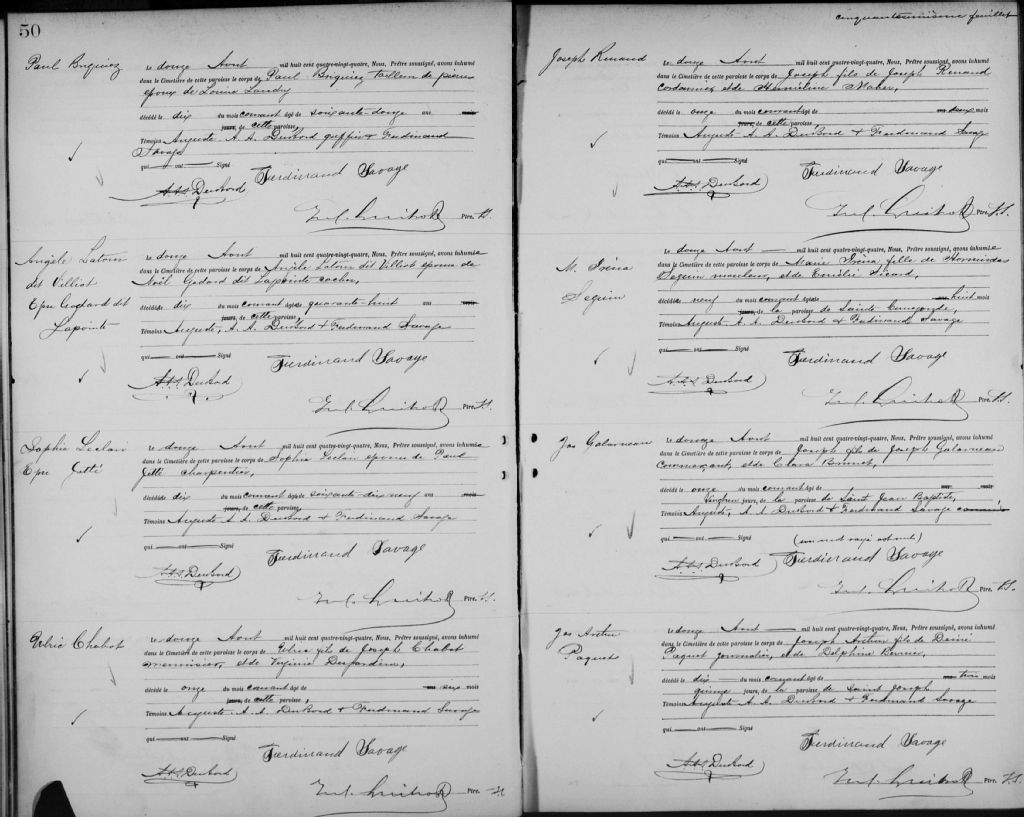 50
Paul Briquiez
Le douze Aout mil huit cent quatre-vingt-quatre, Nous, Prêtre soussigné, avons inhumé
dans le Cimetière de cette paroisse le corps de Paul Briquiez tailleur de pierre
époux de Louise Landry
décédé le dix du mois courant âgé de soixante-douze ans mois
jours, de cette paroisse,
Témoins Auguste A. A. Dubord greffier & Ferdinand
Savage
qui ont Signé
Ferdinand Savage
A.A.A. Dubord
Ptre. S.S.
Angèle Latour
dit Villiot
Epse Godard dit
Lapointe
Le douze Aout mil huit cent quatre-vingt-quatre, Nous, Prêtre soussigné, avons inhumé
dans le Cimetière de cette paroisse le corps de Angèle Latour dit Villiot épouse de
Noël Godard dit Lapointe cocher,
décédée dix du mois courant âgée de quarante-huit ans mois
jours, de cette paroisse,
Témoins Auguste, A. A. Dubord & Ferdinand Savage
qui ont Signé
Ferdinand Savage
A.A.A. Dubord
Ptre. S.S.
Sophie Leclair
Epse Jetté
Le douze Aout mil huit cent quatre-vingt-quatre, Nous, Prêtre soussigné, avons inhumé
dans le Cimetière de cette paroisse le corps de Sophie Leclair épouse de Paul
Jetté charpentier,
décédée dix du mois courant âgée de soixante-dix-neuf ans mois
jours, de cette paroisse,
Témoins Auguste A. A. Dubord & Ferdinand Savage
qui ont Signé
Ferdinand Savage
A.A.A. Dubord
Ptre. S.S.
Chabot
Le douze Aout mil huit cent quatre-vingt-quatre, Nous, Prêtre soussigné, avons inhumé
dans le Cimetière de cette paroisse le corps de fils de Joseph Chabot
menuisier, et de Virginie Desjardins,
décédé le onze du mois courant âgé de ans six mois
jours, de cette paroisse,
Témoins Auguste A. A. Dubord & Ferdinand Savage
qui ont Signé
Ferdinand Savage
A.A.A. Dubord
Ptre. S.S.
cinquante unième feuillet
Joseph Renaud
Le douze Aout mil huit cent quatre-vingt-quatre, Nous, Prêtre soussigné, avons inhumé
dans le Cimetière de cette paroisse le corps de Joseph fils de Joseph Renaud
cordonnier, et de Maher,
décédé le onze du mois courant âgé de ans deux mois
jours, de cette paroisse,
Témoins Auguste A. A. Dubord & Ferdinand Savage
qui ont Signé
Ferdinand Savage
A.A.A. Dubord
Ptre. S.S.
M. Iréna
Seguin
Le douze Aout mil huit cent quatre-vingt-quatre, Nous, Prêtre soussigné, avons inhumée
dans le Cimetière de cette paroisse le corps de Marie Iréna fille de Hormisdas
Seguin mouleur, et de Emélie Sicard,
décédée neuf du mois courant âgée de ans huit mois
jours, de la paroisse de Sainte Cunégonde,
Témoins Auguste A. A. Dubord & Ferdinand Savage
qui ont Signé
Ferdinand Savage
A.A.A. Dubord
Ptre. S.S.
Jos Galarneau
Le douze Aout mil huit cent quatre-vingt-quatre, Nous, Prêtre soussigné, avons inhumé
dans le Cimetière de cette paroisse le corps de Joseph fils de Joseph Galarneau
commerçant, et de Clara Brunet,
décédé le onze du mois courant âgé de ans mois
jours, de la paroisse de Saint Jean Baptiste,
Témoins Auguste, A. A. Dubord & Ferdinand Savage
qui ont Signé (un mot rayé est nul)
Ferdinand Savage
A.A.A. Dubord
Ptre. S.S.
Jos Arthur
Paquet
Le douze Aout mil huit cent quatre-vingt-quatre, Nous, Prêtre soussigné, avons inhumé
dans le Cimetière de cette paroisse le corps de Joseph Arthur fils de
Paquet journalier, et de Delphine Bernier,
décédé le dix du mois courant âgé de ans trois mois
quinze jours, de la paroisse de Saint Joseph
Témoins Auguste A. A. Dubord & Ferdinand Savage
qui ont Signé
Ferdinand Savage
A.A.A. Dubord
Ptre. S.S.